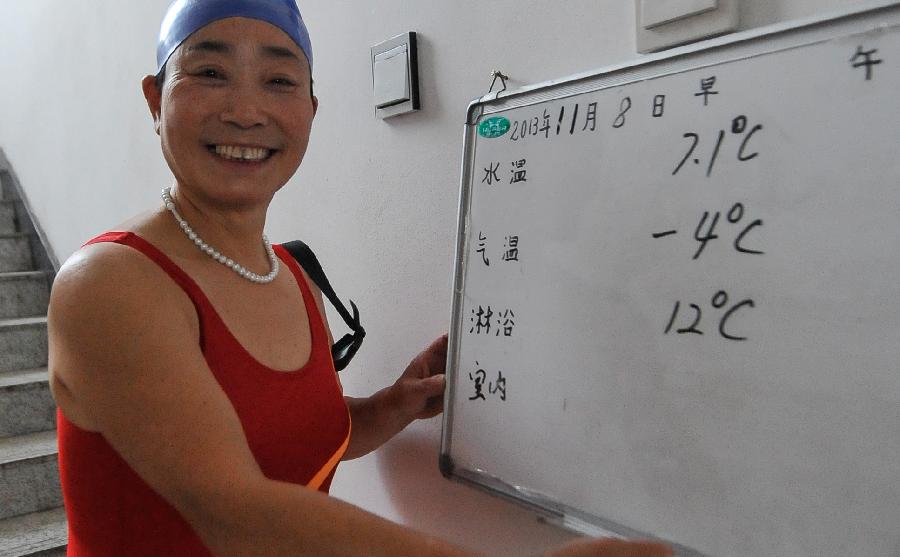 2013年11月8日 早 午
水温 7.1℃
气温 -4℃
淋浴 12℃
室内